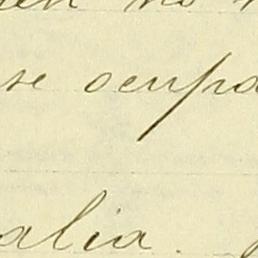 no
se ocupa
alia.